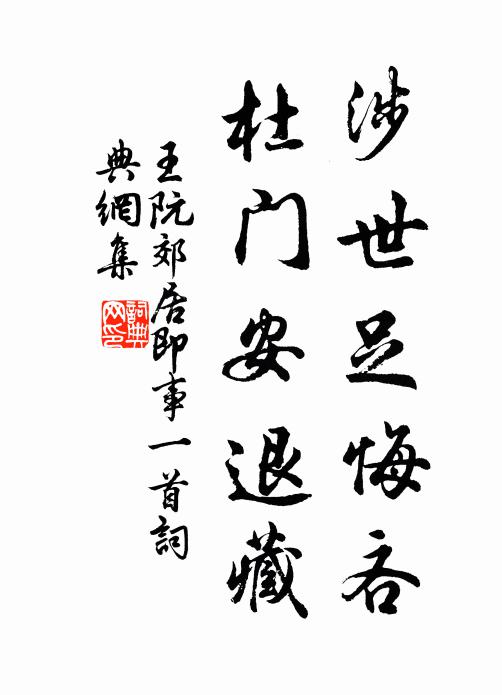 涉世足悔吝
杜门安退藏
王阮郊居即事一首詞
典網集
詞典
网印